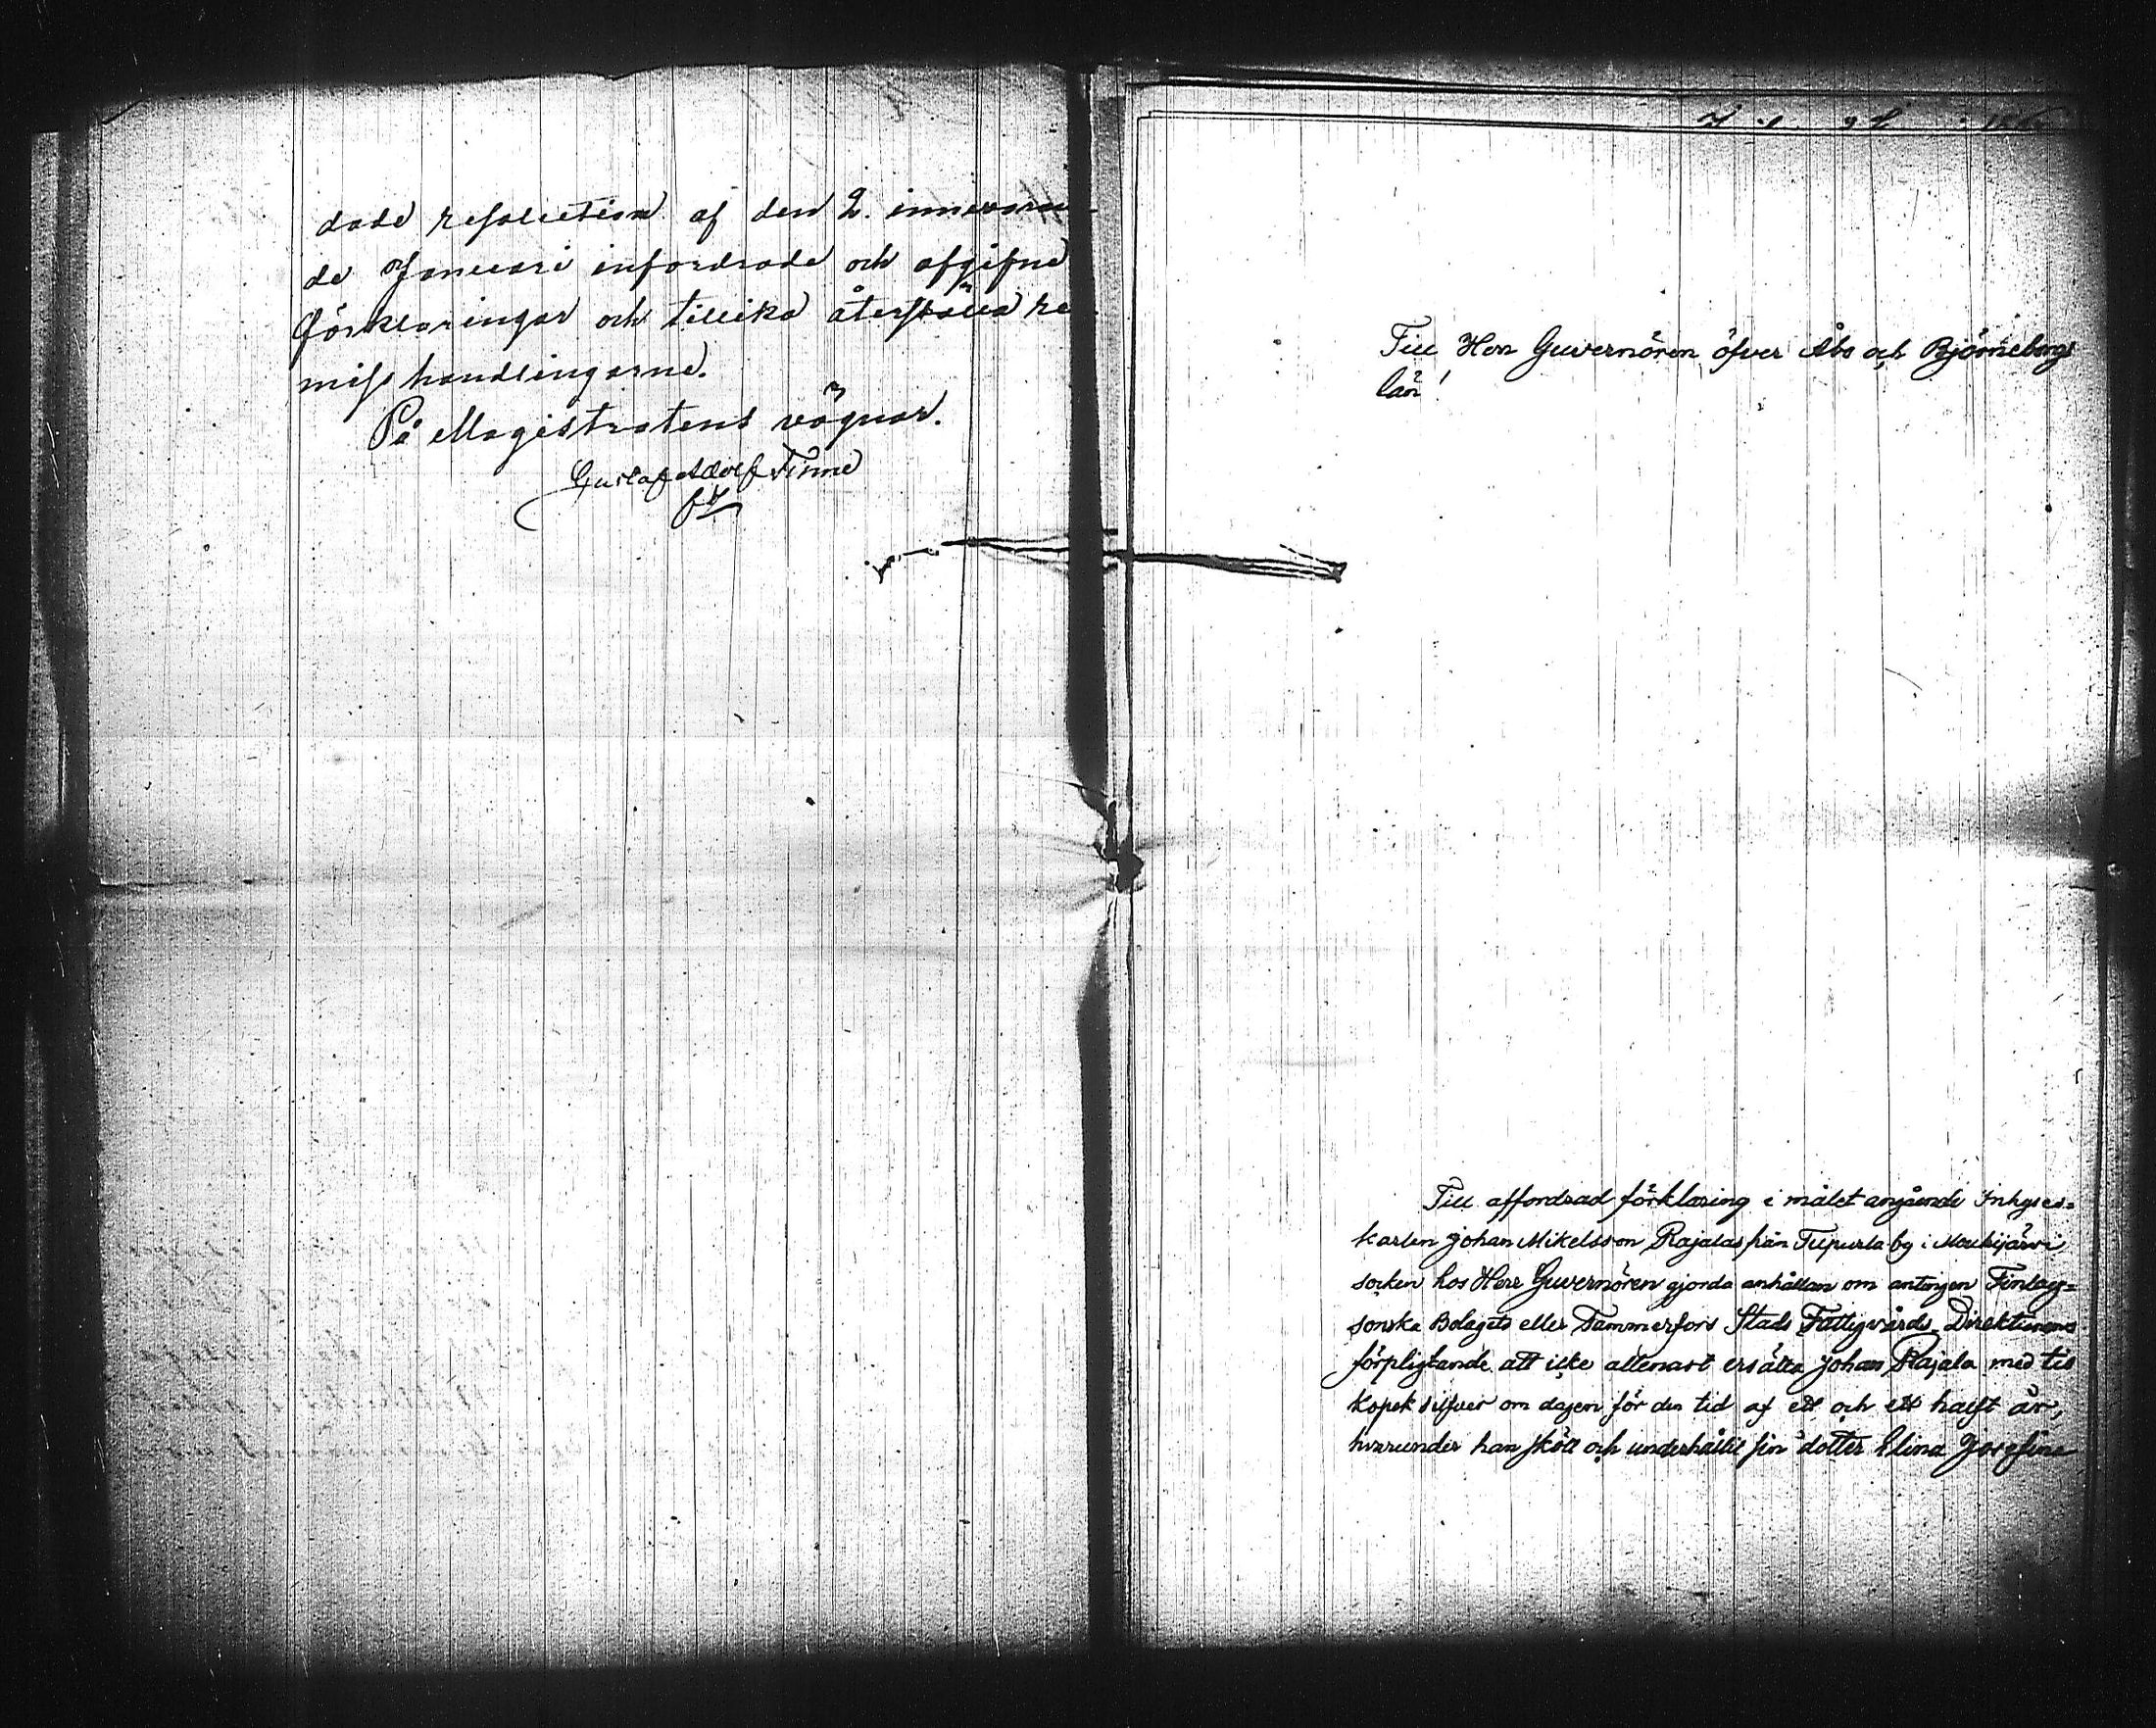 dade resolution af den 2. innevaran-
de Januari infordrade och afgifne
förklaringar och tillika återställa re-
miss handlingarne.
På Magistratens vägnar.
Gustaf Adolf Finne
Till Herr Guvernören öfver Åbo och Björneborgs
län!
Till affordrad förklaring i målet angående Inhyses-
karlen Johan Mikelsson Rajalas från Tupurla by i Mouhijärvi
socken hos Herr Guvernören gjorda anhållan om antingen Finlay-
sonska Bolagets eller Tammerfors Stads Fattigvårds Direktionens
förpligtande att icke allenast ersätta Johan Rajala med tio
kopek silfver om dagen för den tid af ett och ett halft år,
hvarunder han skött och underhållit sin dotter Elina Josefina